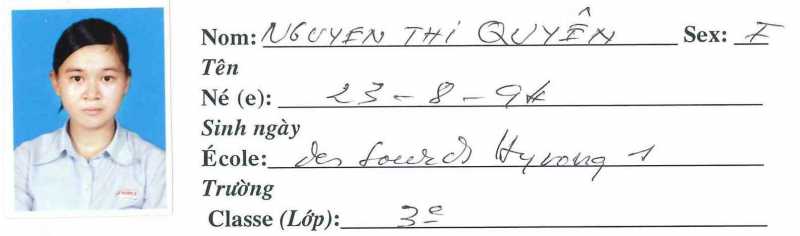 Nom: NGUYEN THI QUYÊN Sex: F
Tên
Né (e): 23-8-94
Sinh ngày
École: des Sourds Hy vong 1
Trường
Classe (Lớp): 3e